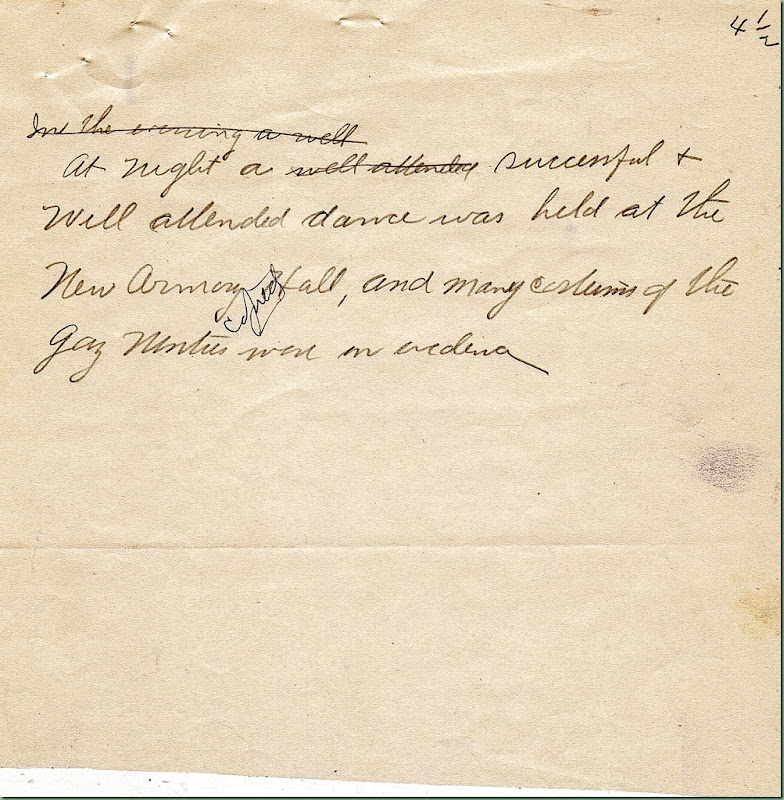 4 1/2
In the evening a well
At night a well attended successful &
Well attended dance was held at the
New Armory Hall, and many costums of the
Gay Nineties were in evidence